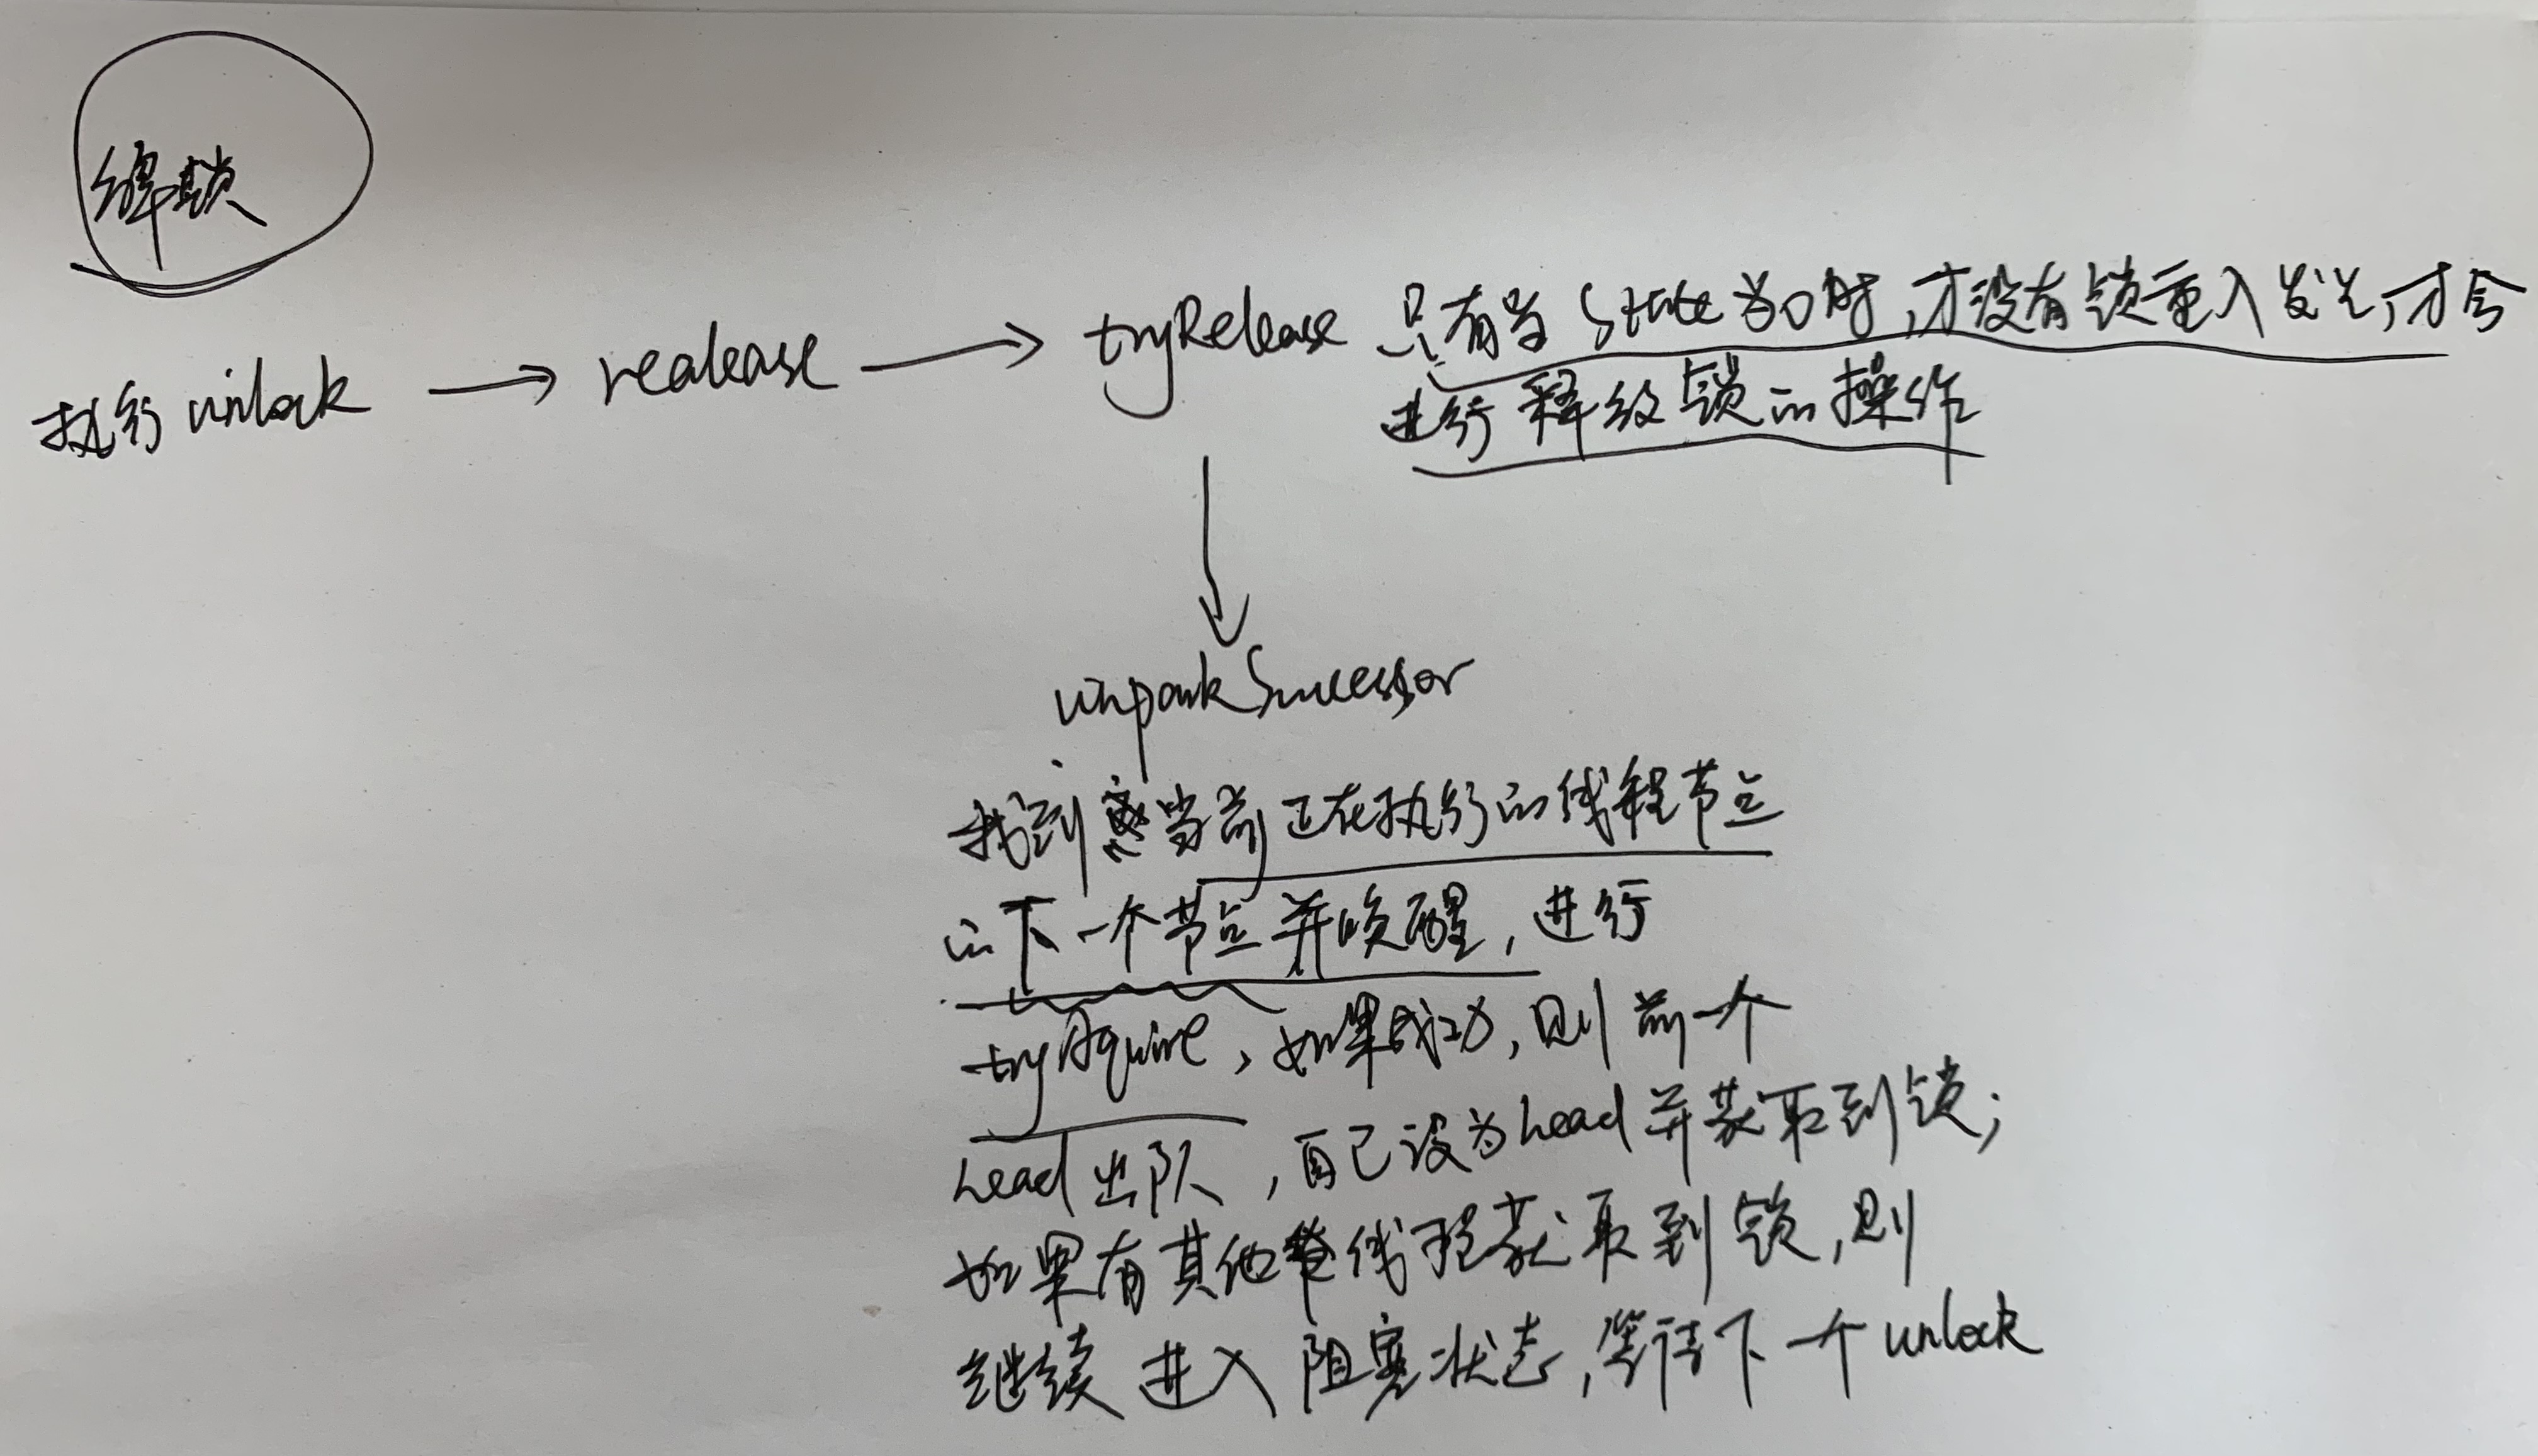 解锁
执行 unlock → realease → tryRelease 只有当 State 为0时,才没有锁重入发生,才会
进行 释放 锁的操作
unparkSuccessor
找到 当前正在执行的线程节点
的下一个节点并唤醒,进行
tryAquire,如果成功,则前一个
head 出队,自己设为head并获取到锁;
如果有其他线程获取到锁,则
继续进入阻塞状态,等待下一个unlock